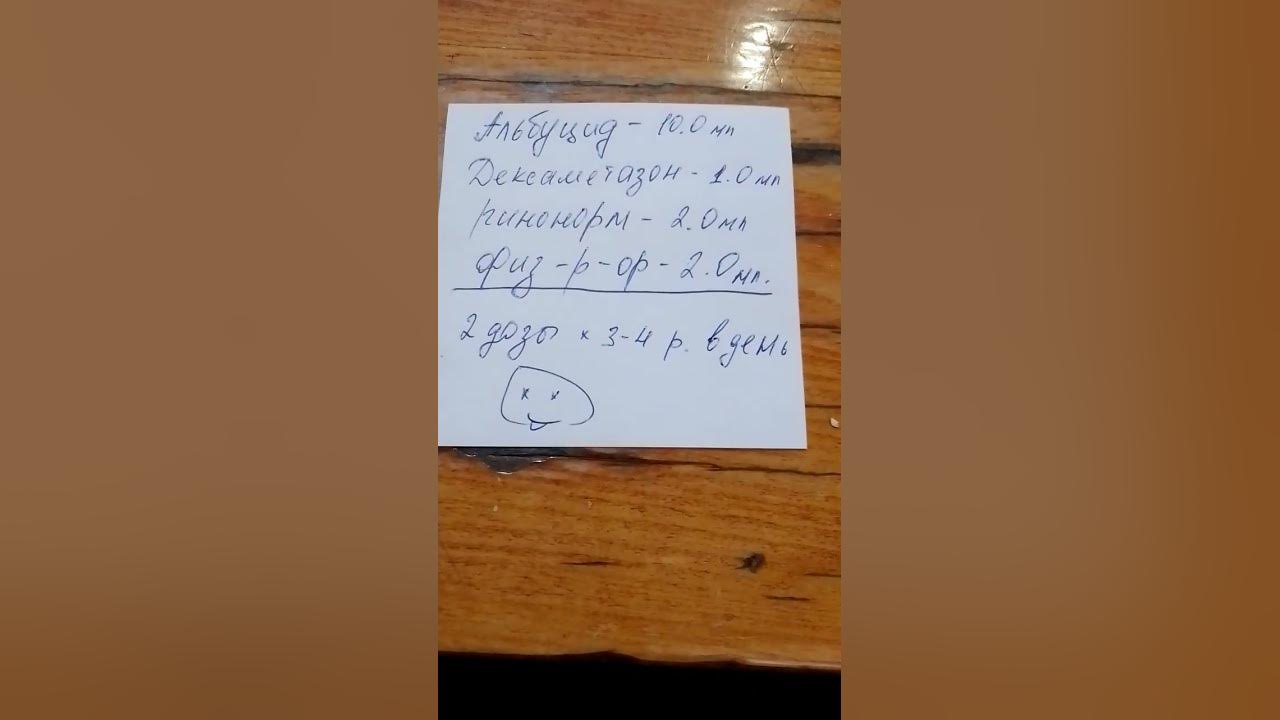 Альбуцид - 10.0 мл
Дексаметазон - 1.0 мл
ринонорм - 2.0 мл
Физ -р-ор - 2.0 мл.
2 дозы × 3-4 р. в день